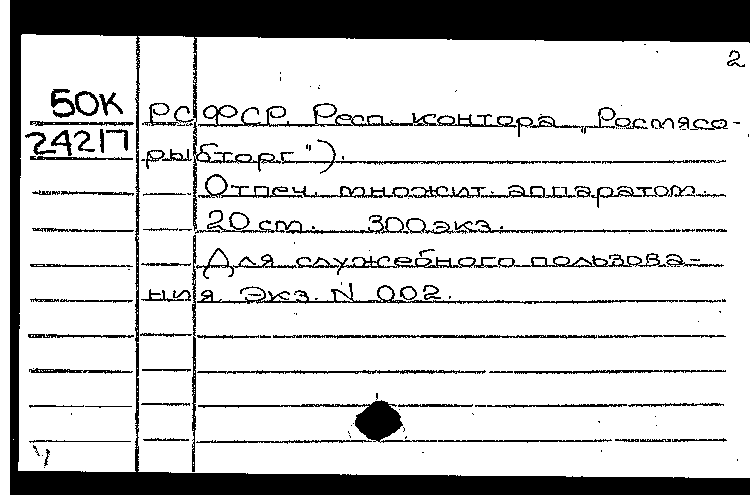 2
50К РСФСР. Респ. контора „Росмясо-
24217 рыбторг").
Отпеч. множит. аппаратом.
20 см. 300 экз.
Для служебного пользова-
ния. Экз. N 002.